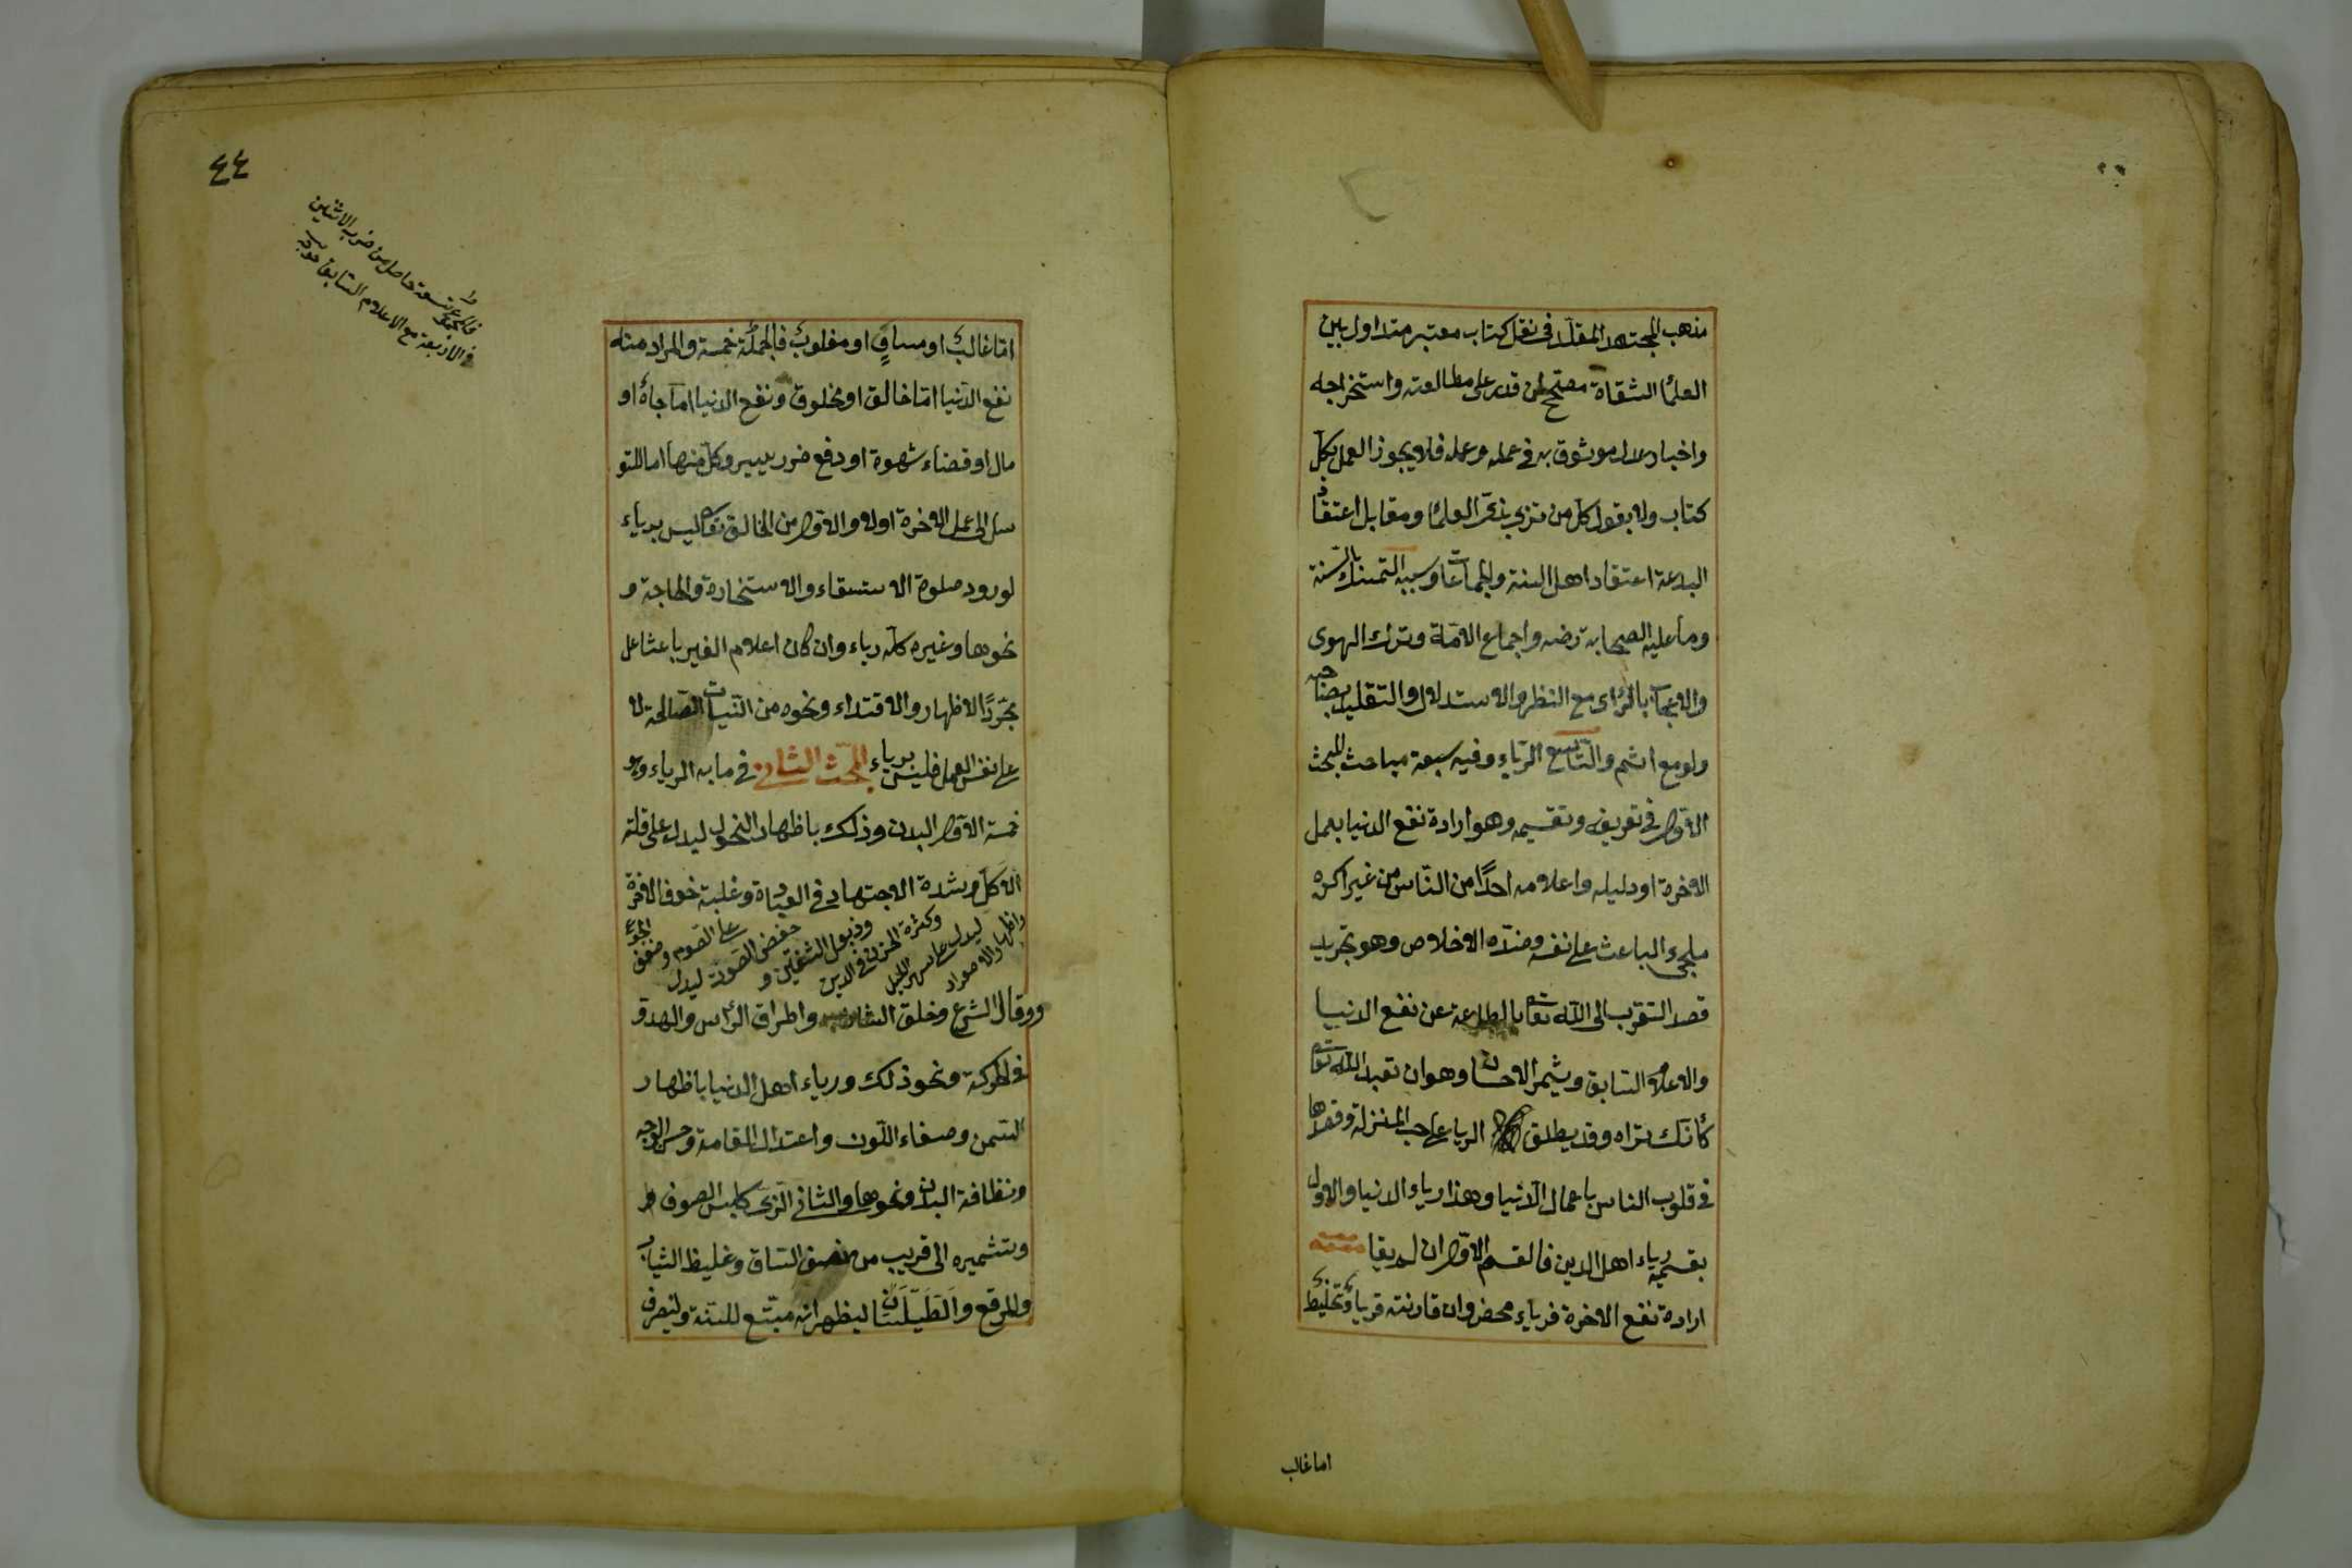 مذهب المجتهد المقلد فى نقل كتاب معتبر متداول بين
العلماء الثقاة مصحح لمن قدر على مطالعته واستخراجه
واخبار عدل موثوق به فى عمله وعلمه فلا يجوز العمل بكل
كتاب ولا بقول كل من تزى بزى العلماء ومقابل اعتقاد
البدعة اعتقاد اهل السنة والجماعة وسببه التمسك بالسنة
وما عليه الصحابة رضه واجماع الامة وترك الهوى
والاعجاب بالرأى مع النظر والاستدلال والتقليد بصاحبه
ولو مع اثم والتاسع الرياء وفيه سبعة مباحث المبحث
الاول فى تعريفه وتقسيمه وهو ارادة نفع الدنيا بعمل
الاخرة او دليله واعلامه احدا من الناس من غير اكراه
ملجىء الباعث على نفسه وضده الاخلاص وهو تجريد
قصد التقرب الى الله تعالى بالطاعة عن نفع الدنيا
والاعلام السابق ويثمر الاحسان وهو ان تعبد الله تعالى
كأنك تراه وقد يطلق الرياء على حب المنزلة وقصدها
فى قلوب الناس باعمال الدنيا وهذا رياء الدنيا والاول
بقسميه رياء اهل الدين فالقسم الاول ان لم يقارنه
ارادة نفع الاخرة فرياء محض وان قارنته فرياء تخليط
اما غالب
٤٤
فالمجموع تسعة حاصل من ضرب الاثنين
فى الاربعة مع الاعلام السابق
اما غالب او مساو او مغلوب فالجملة خمسة والمراد منه
نفع الدنيا اما خالق او مخلوق ونفع الدنيا اما جاه او
مال او قضاء شهوة او دفع ضرر يسير وكل منها اما للتو
سل الى عمل الاخرة اولا والاول من الخالق تعالى ليس برياء
لورود صلوة الاستسقاء والاستخارة والحاجة و
نحوها وغيره كله رياء وان كان اعلام الغير باعثا على
مجرد الاظهار والاقتداء ونحوه من النيات الصالحة لا
على نفس العمل فليس برياء المبحث الثانى فى ما به الرياء وهو
خمسة الاول البدن وذلك باظهار النحول ليدل على قلة
الاكل وشدة الاجتهاد فى العبادة وغلبة خوف الاخرة
واظهار الاصفرار ليدل على سهر الليل وكثرة الحزن فى الدين وذبول الشفتين و خفض الصوت ليدل على الصوم وضعف الجوع
ووقار الشرع وحلق الشارب واطراق الرأس والهدو
فى الحركة ونحو ذلك ورياء اهل الدنيا باظهار
السمن وصفاء اللون واعتدال القامة وحسن الوجه
ونظافة البدن ونحوها والثانى الزى كلبس الصوف
وتشميره الى قريب من نصف الساق وغليظ الثياب
والمرقع والطيلسان ليظهر انه متبع للسنة ولينصرف